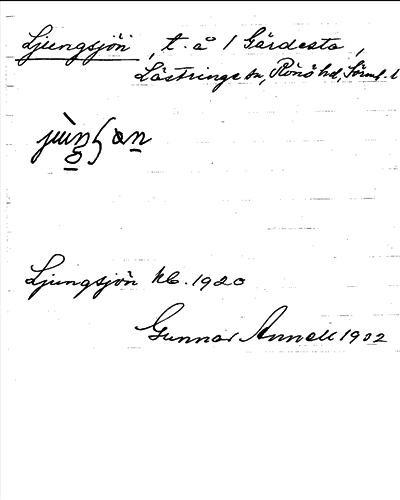 Ljungsjön, t. å 1 Gärdesta,
Lästringe sn, Rönö hd, Sörml. l
Ljungsjön kb. 1920
Gunnar Annell 1902